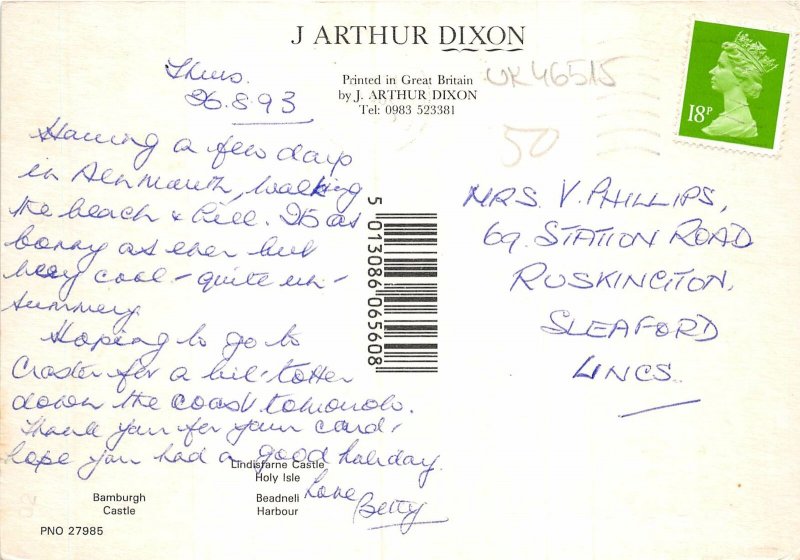 J ARTHUR DIXON
Printed in Great Britain
by J. ARTHUR DIXON
Tel: 0983 523381
UK46515
50
18P
Thurs.
26.8.93
Having a few days
in Alnmouth, walking
the beach & hill. It's as
bonny as ever but
very cool - quite un-
summery.
Hoping to go to
Craster for a bit
down the coast tomorrow.
Thank you for your card,
hope you had a good holiday.
Love
Betty
MRS. V. PHILLIPS,
69. STATION ROAD
RUSKINGTON.
SLEAFORD
LINCS.
5 013086 065608
Lindisfarne Castle
Holy Isle
Bamburgh
Castle
Beadnell
Harbour
PNO 27985